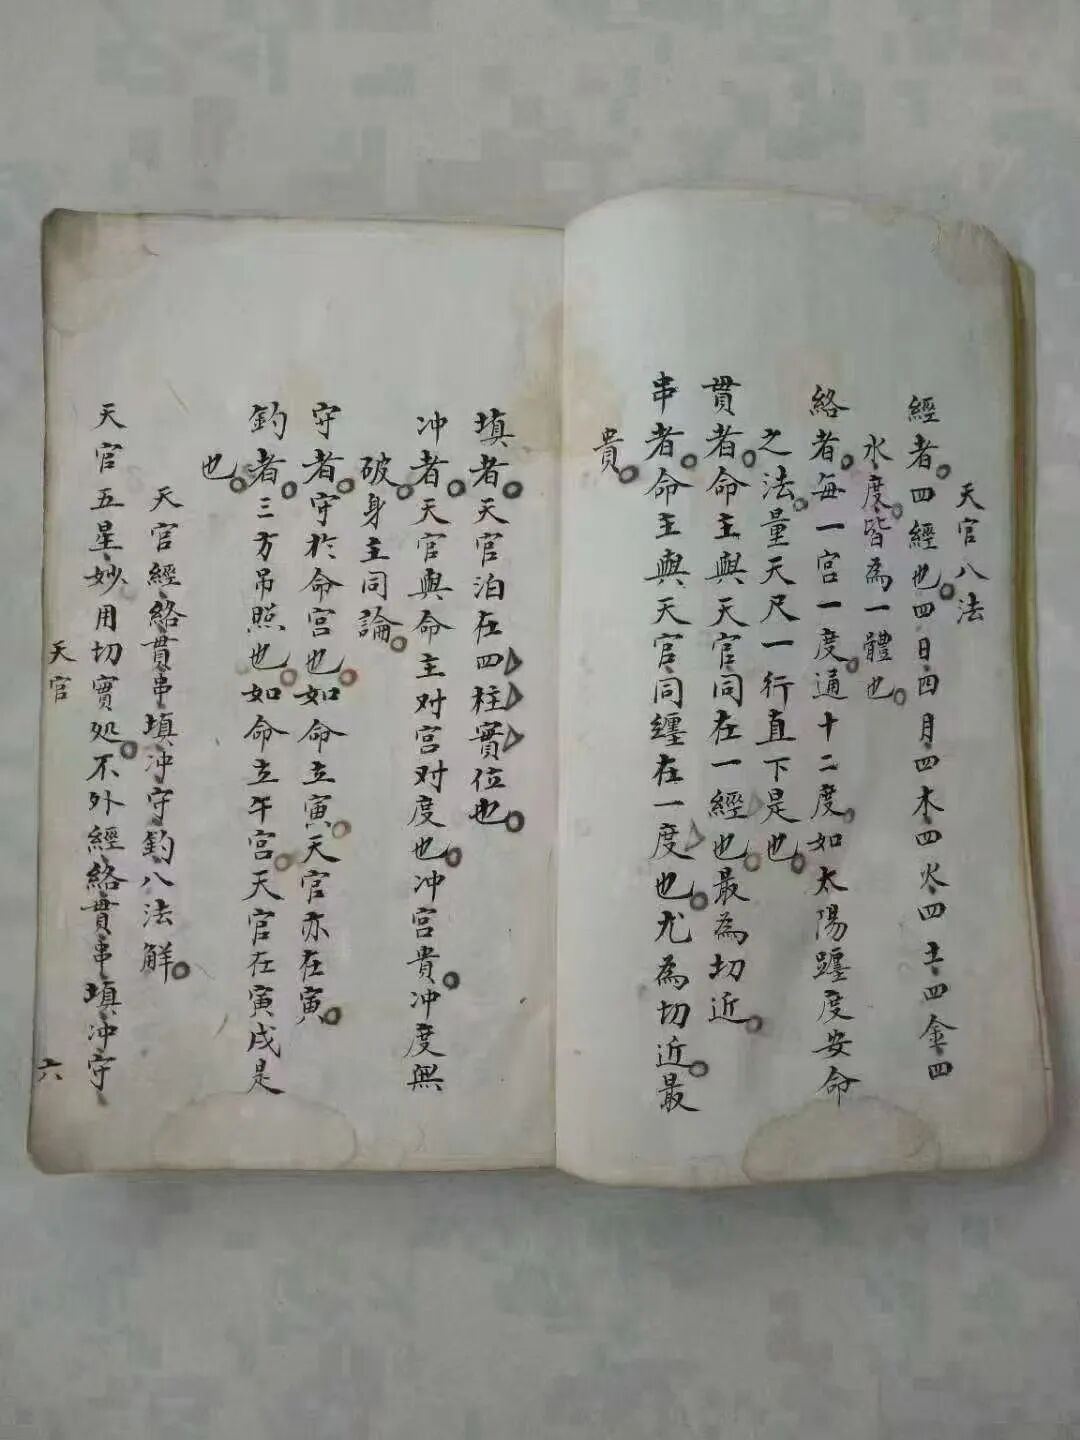 天官八法
經者四經也四日四月四木四火四土四金四
水度皆為一體也
絡者每一宮一度通十二度如太陽躔度安命
之法量天尺一行直下是也
貫者命主與天官同在一經也最為切近
串者命主與天官同纏在一度也尤為切近最
貴
填者天官泊在四柱實位也
冲者天官與命主对宮对度也冲宮貴冲度無
破身主同論
守者守於命宮也如命立寅天官亦在寅
釣者三方吊照也如命立午宮天官在寅戌是
也
天官經絡貫串填冲守釣八法解
天官五星妙用切實処不外經絡貫串填冲守
天官
六